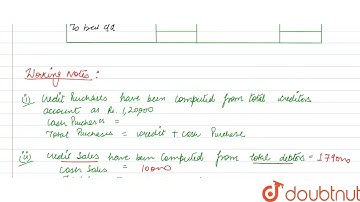 To bal c/d
Working Notes :
(i) Credit Purchases have been computed from total creditors
account as Rs. 1,20000
Cash Purchases =
Total Purchases = credit + cash Purchase
(ii) Credit Sales have been computed from total debtors = 179000
Cash Sales = 10000
doubtnut